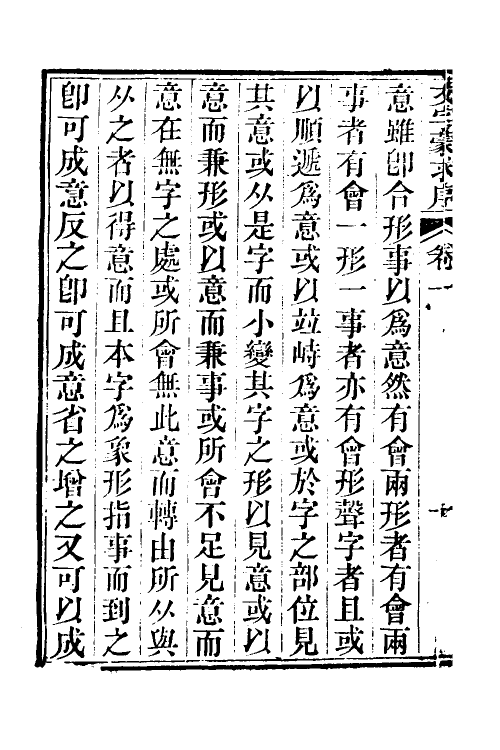 文字蒙求序 卷一
意雖卽合形事以爲意然有會兩形者有會兩
事者有會一形一事者亦有會形聲字者且或
以順遞爲意或以竝峙爲意或於字之部位見
其意或从是字而小變其字之形以見意或以
意而兼形或以意而兼事或所會不足見意而
意在無字之處或所會無此意而轉由所从與
从之者以得意而且本字爲象形指事而到之
卽可成意反之卽可成意省之增之又可以成